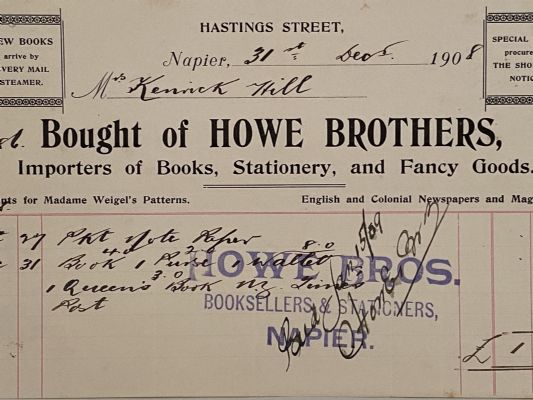 HASTINGS STREET,
EW BOOKS
arrive by
VERY MAIL
STEAMER.
SPECIAL
procure
THE SHO
NOTIC
Napier, 31st Decr 1908
Mrs Kenrick Hill
Bought of HOWE BROTHERS,
Importers of Books, Stationery, and Fancy Goods.
nts for Madame Weigel's Patterns.
English and Colonial Newspapers and Mag
27 Pkt Note Paper
31 Book 4.0 1 Purse 2.6 Wallet 8.0
1 Queen's Book 3.0 NZ Times
Post
HOWE BROS.
BOOKSELLERS & STATIONERS,
NAPIER.
Paid
£ 1